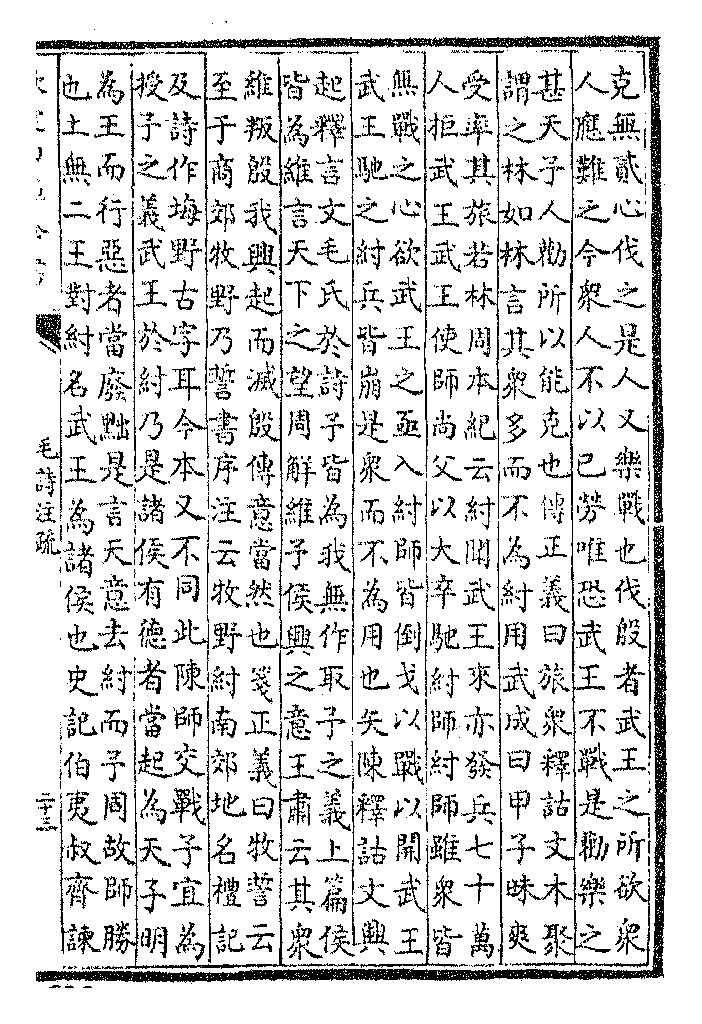 克無貳心伐之是人又樂戰也伐殷者武王之所欲衆
人應難之今衆人不以已勞唯恐武王不戰是勸樂之
甚天子人勸所以能克也傳正義曰旅衆釋詁文木聚
謂之林如林言其衆多而不為紂用武成曰甲子昧爽
受率其旅若林周本紀云紂聞武王來亦發兵七十萬
人拒武王武王使師尚父以大卒馳紂師紂師雖衆皆
無戰之心欲武王之亟入紂師皆倒戈以戰以開武王
武王馳之紂兵皆崩是衆而不為用也矢陳釋詁文興
起釋言文毛氏於詩子皆為我無作取子之義上篇侯
皆為維言天下之望周解維予侯興之意王肅云其衆
維叛殷我興起而滅殷傳意當然也箋正義曰牧誓云
至于商郊牧野乃誓書序注云牧野紂南郊地名禮記
及詩作坶野古字耳今本又不同此陳師交戰子宜為
授子之義武王於紂乃是諸侯有德者當起為天子明
為王而行惡者當廢黜是言天意去紂而子周故師勝
也土無二王對紂名武王為諸侯也史記伯夷叔齊諫
毛詩注疏
二十三